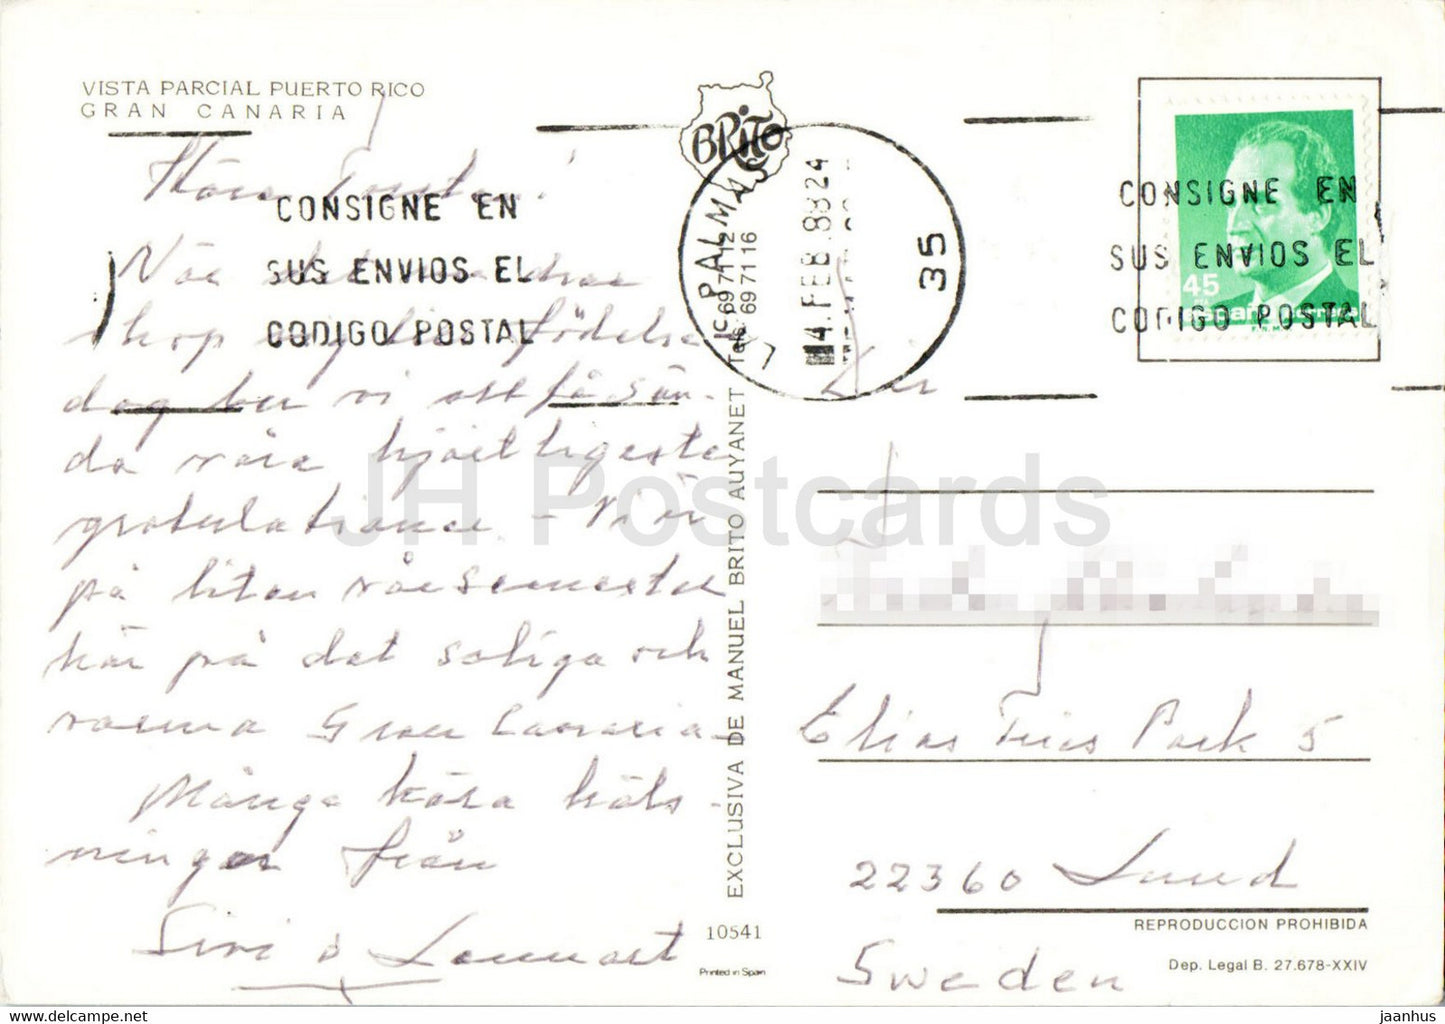 VISTA PARCIAL PUERTO RICO
GRAN CANARIA
BRITO
Kära
CONSIGNE EN
SUS ENVIOS EL
CODIGO POSTAL
När
födelse
dag ber vi att få sän-
da våra hjärtligaste
gratulationer - Vi är
på liten vårsemester
här på det soliga och
varma Gran Canaria.
Många kära häls-
ningar från
Siri o Lennart
LAS PALMAS
4. FEB 88 24
35
EXCLUSIVA DE MANUEL BRITO AUYANET Tels. 69 71 12
69 71 16
10541
Printed in Spain
45
España correos
CONSIGNE EN
SUS ENVIOS EL
CODIGO POSTAL
Elias Fries Park 5
22360 Lund
Sweden
REPRODUCCION PROHIBIDA
Dep. Legal B. 27.678-XXIV
JH Postcards
https://jhpostcards.net
jaanhus